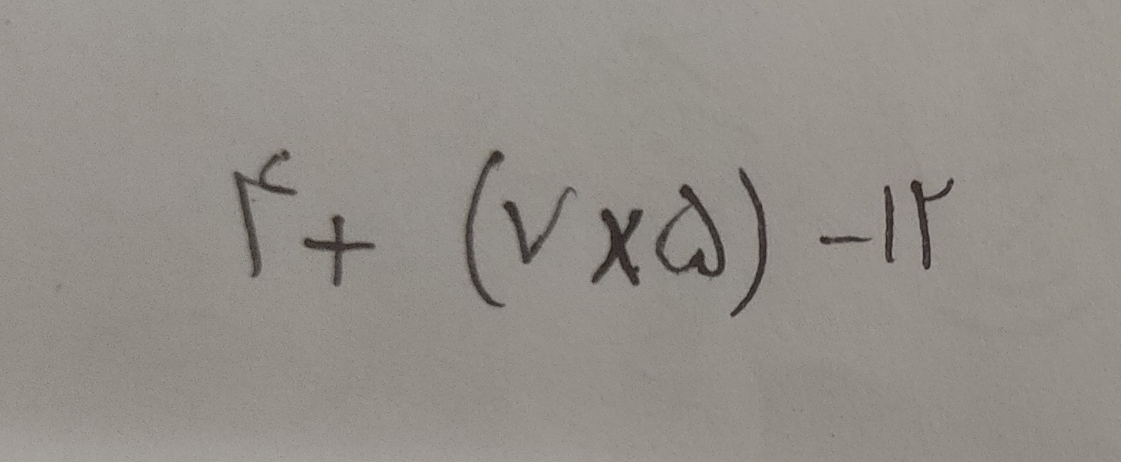 ۴+ (۷×۵) -۱۲